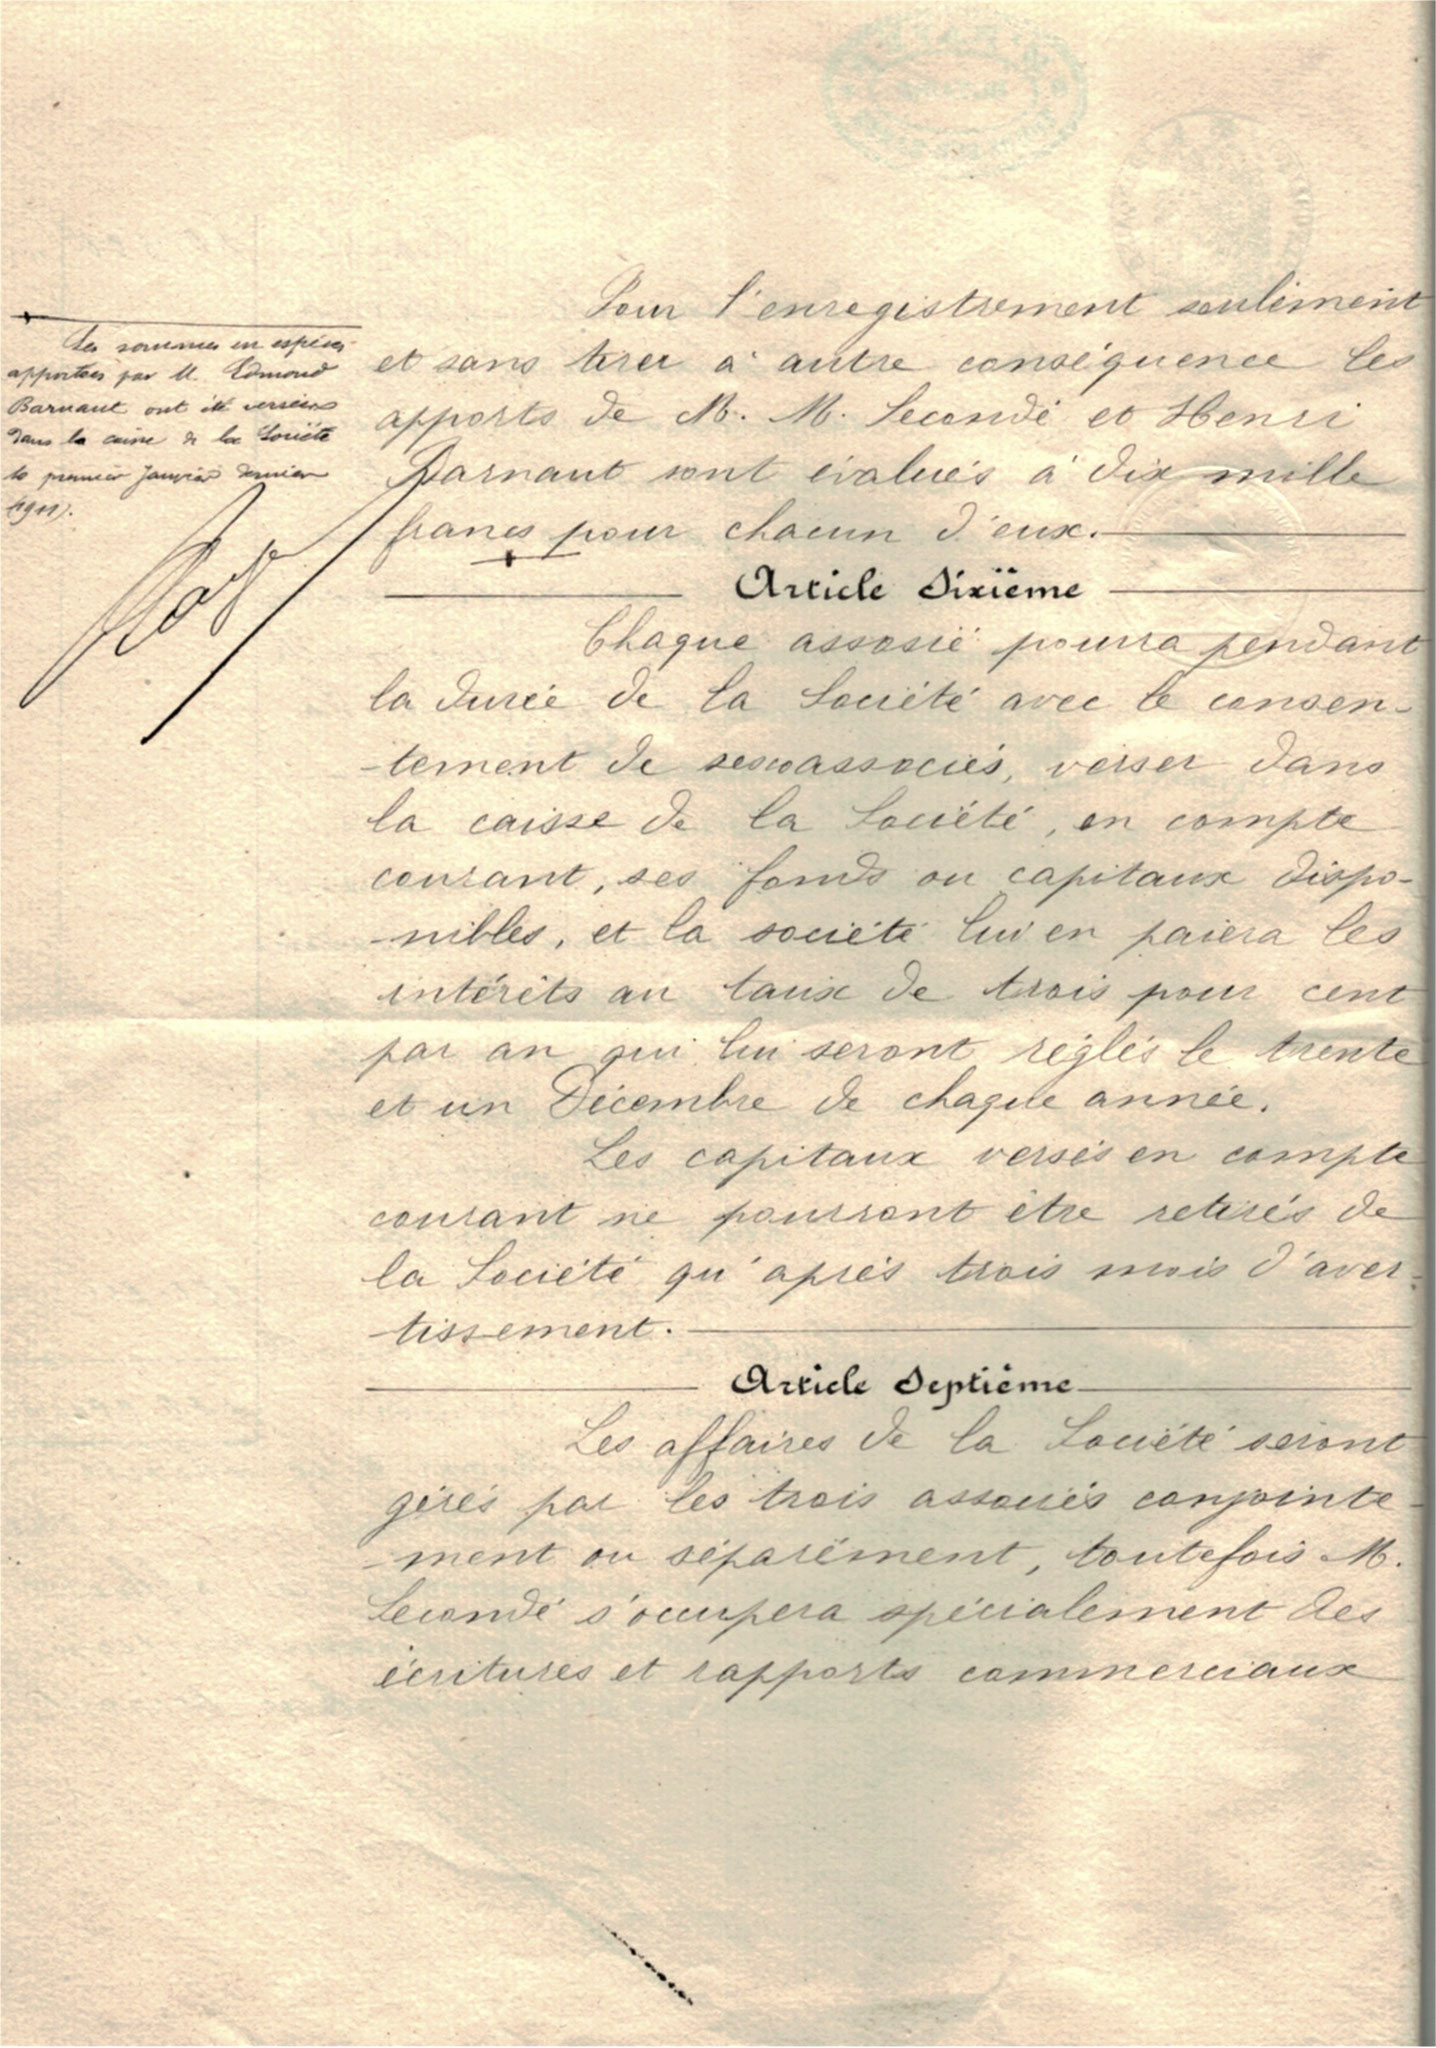 Les sommes en espèces
apportées par M. Edmond
Barnaut ont été versées
dans la caisse de la Société
le premier Janvier dernier
(1911).
Pour l'enregistrement seulement
et sans tirer à autre conséquence les
apports de M. M. Secondé et Henri
Barnaut sont évalués à dix mille
francs pour chacun d'eux.
Article Sixième
Chaque associé pourra pendant
la durée de la Société avec le consen-
-tement de ses coassociés, verser dans
la caisse de la Société, en compte
courant, ses fonds ou capitaux dispo-
-nibles, et la société lui en paiera les
intérêts au taux de trois pour cent
par an qui lui seront réglés le trente
et un Décembre de chaque année.
Les capitaux versés en compte
courant ne pourront être retirés de
la Société qu'après trois mois d'aver-
-tissement.
Article Septième
Les affaires de la Société seront
gérés par les trois associés conjointe-
-ment ou séparément, toutefois M.
Secondé s'occupera spécialement des
écritures et rapports commerciaux